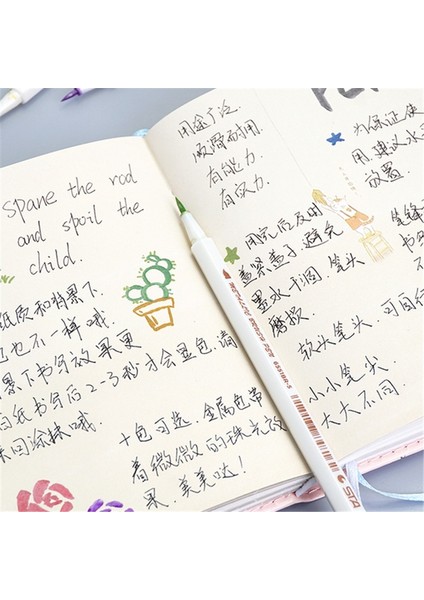 spane the rod
and spoil the
child.
纸质和背景下
也不一样哦
景下书写效果更
白纸书写后2-3秒才会显色,请
来回涂抹哦.
十色可选,金属色带
着微微的珠光效
果,美美哒!
用途广泛.
顺滑耐用.
有能力.
有权力.
用完后及时
盖紧盖子避免
墨水干涸,笔头
磨损.
为保证使
用,建议水平
放置.
笔锋
书写
软头笔头,可画
小小笔尖
大大不同.
STA